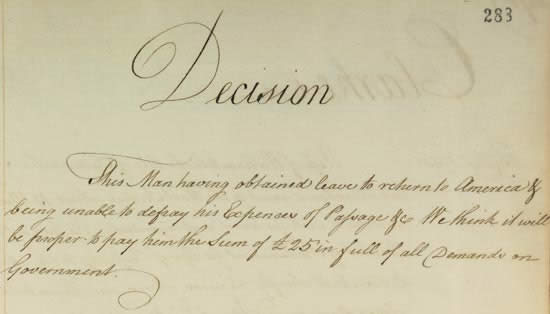 283
Decision
This Man having obtained leave to return to America &
being unable to defray his Expences of Passage &c We think it will
be proper to pay him the Sum of £25 in full of all Demands on
Government.